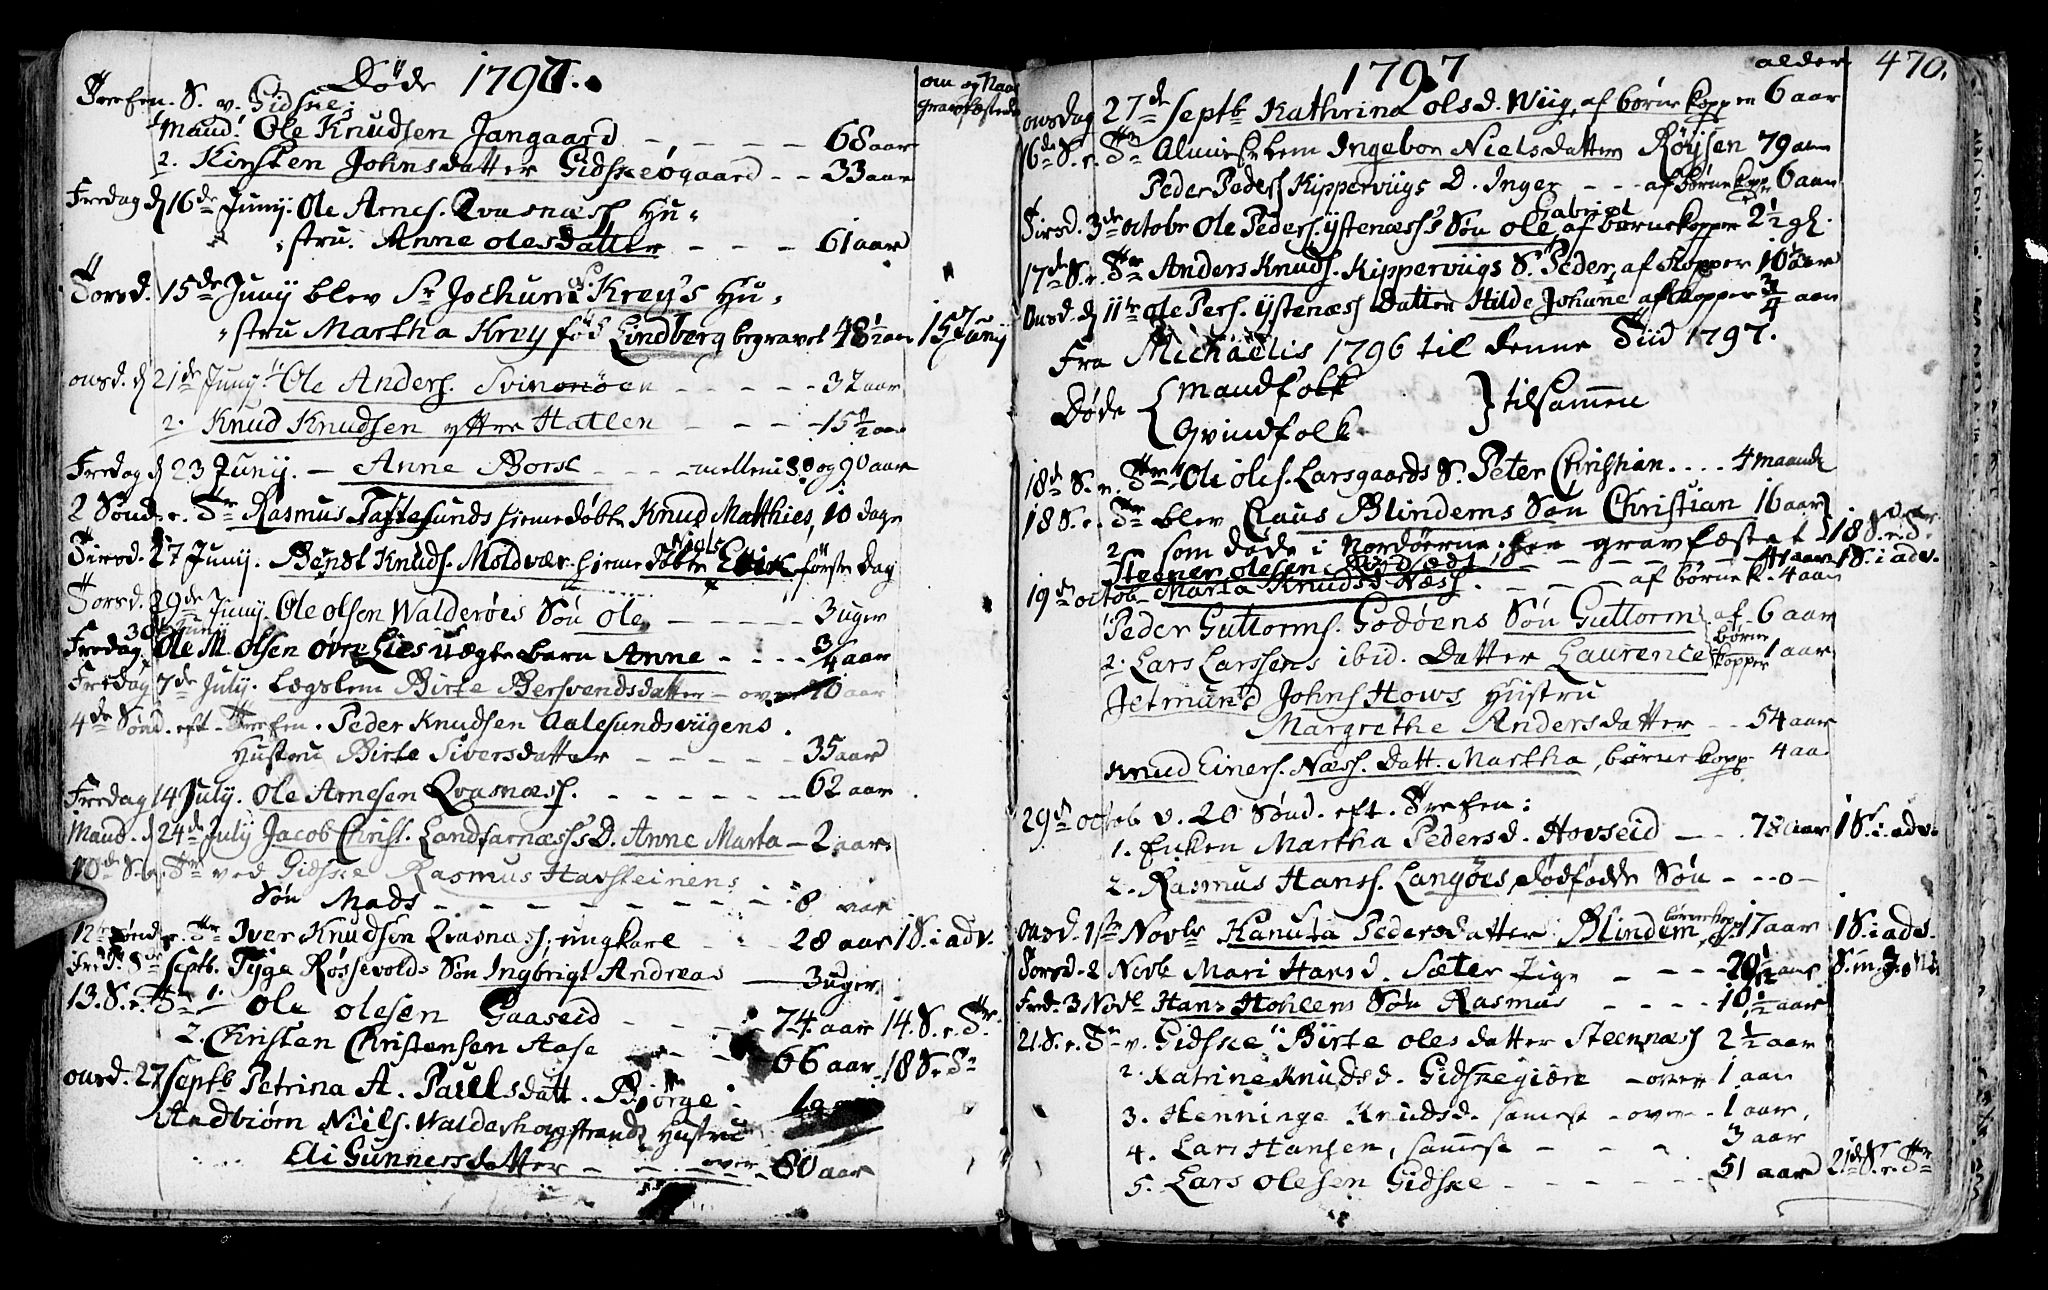 Døde 1797.
om og Naar
gravfæstede
Trefen. S. v. Gidske.
1 Maud. Ole Knudsen Jangaard - - - - 68 aar
2. Kirsten Johnsdatter Gidskeøgaard - - 33 aar
Fredag d 16de Junij. Ole Arnes. Qvasnæss Hu=
=stru. Anne olesdatter - - - 61 aar
Torsd. 15de Junij blev Sr Jochum Krey's Hu=
=stru Martha Krey fød Lindberg begravet 48½ aar 15 Junij
onsd. d 21de Junij. Ole Anders. Svinonöen - - - - 32 aar
2. Knud Knudsen yttre Hatlen - - - - 15½ aar
Fredag d 23 Junij. - Anne Borse - - - mellem 80 og 90 aar
2 Sønd. e. Tr Rasmus Taftesunds hiemedøbte Knud Matthies, 10 dage
Tirsd. 27 Junij. Bendt Knuds. Moldvær hiemedøbte Erik første dag
Torsd. 29de Junij. Ole olsen Walderöes Sön Ole - - - - - 3 uger
30 Junij
Fredag. Ole M. Olsen øvre Lies uægte barn Anne - - - ¾ aar
Fredag 7de July. Lægslem Birte Bersvendsdatter - over 70 aar
4de Sønd. eft. Trefen. Peder Knudsen Aalesundsviigens.
Hustru Birte Siversdatter - - - - - 35 aar
Fredag 14 July. Ole Arnesen Qvasnæss. - - - - - - - 62 aar
Maud. d 24de July Jacob Christ. Landsarnæss's D. Anne Marta - 2 aar
10de S. e. Tr ved Gidske Rasmus Havsteinens
Søn Mads - - - - - - - - 8 aar
12te Sønd. e. Tr Iver Knudsen Qvasnæss, ungkarl - - 28 aar 1 S. i adv.
8de Septb. Tyge Røssevolds Søn Ingbrigt Andreas - 3 uger.
13. S. e. Tr 1. Ole Olesen Gaaseid - - - - 74. aar 14. S. e. Tr.
2. Christen Christensen Aase - - - 66 aar 18 S. e. Tr
onsd. 27 Septb Petrina A. Paulsdatt. Biörge -
Andbiörn Niels. Walderhougstrands Hustru
Eli Gunnersdatter - - over - 80 aar
1797
alder
470.
onsdag 27de Septb Kathrina olsd. Wiig, af børnekoppen 6 aar
16de S. e. Tr Almisselem Ingebor Nielsdatter Røysen 79 aar
Peder Peders Kipperviigs D. Inger - - - af børnekopp 6 aar
Tirsd. 3de octobr Ole Peders. ystenæss's Søn ole Gabriel af børnekopper 2½ gl.
17de S. e. Tr Anders Knuds. Kipperviigs S. Peder, af Kopper 10 aar
Onsd. d 11te ole Pers. ystenæss Datter Hilde Johane af Kopper ¾ aar
Fra Michaelis 1796 til denne Tiid 1797.
Døde { Mandfolk
Qvindfolk } tilsammen
18de S. e. Tr Ole oles. Larsgaards S. Peter Christian.... 4 maande
18 S. e. Tr blev Claus Blindems Søn Christian 16 aar
som døde i Nordøerne, gravfæstet 18 S. e. Tr
Steener olesen - - - - aar 1 S. i adv.
19de octob. Marta Knudsd. Næss. - - - af børnek. 4 aar
Peder Guttorms. Godøens Søn Guttorm af 6 aar
børne
kopper
2. Lars Larssens ibid. Datter Laurence 1 aar
Jetmund Johns Hows Hustru
Margrethe Andersdatter - - 54 aar
Knud Einers. Næss. Datt. Martha, børnekopp 4 aar
29de octob v. 20 Sønd. eft. Trefen:
1. Enken Martha Pedersd. Hovseid - - . 78 aar 1 S. i. adv.
2. Rasmus Hanss. Langöes, dødfødde Søn - - - 0 -
onsd. 1ste Novbr Hanusa Pedersdatter Blindem, børnekop. 17 aar 1 S. i adv.
Torsd. 2 Novb Mari Hansd. Sæter Pige - - - 20½ aar
Fred. 3 Novb Hans Hohlens Søn Rasmus - - - - 10½ aar
21. S. e. Tr v. Gidske 1 Birte olesdatter Steennæss 2½ aar
2. Katrine Knudsd. Gidskegiöre - over 1 aar
3. Henninge Knudsd. sameste - over - 1 aar,
4. Lars Hansen, sammeste - - - 3 aar
5. Lars olesen Gidske - - - - - 51 aar 21de S. e. Tr